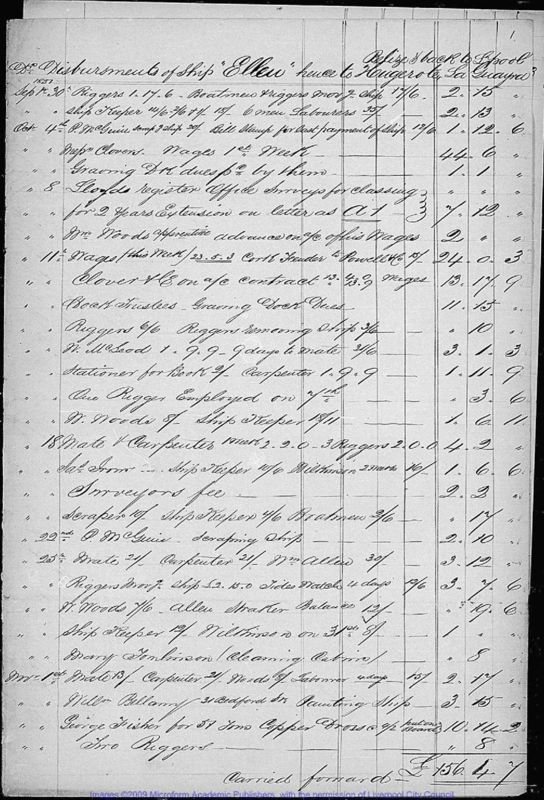 1
Belize & back to L'pool
Dr. Disbursments of Ship "Ellen" hence to & La Guayra
1857
Sepr 30 Riggers 1.17.6 - Boatmen & Riggers movg Ship 17/6 - 2. 15 "
" " Ship Keeper 15/- 6 men Labourers 35/- 2. 13 "
Oct 4th P. McGuire 3 ship Bill Stamp for last payment of Ship 12/6 1. 12. 6
" " Messrs Clovers Wages 1st Week — 44. 6 "
" " Graving Dk dues pd by them — 1. 1 "
" 8 Lloyds register Office Surveys for classing
" " for 2 Years Extension on letter as A 1 — 7. 12 "
" " Wm Woods apprentice advance on a/c of his Wages 2 " "
" 11th Wages (this Week) 23.5.3 Cork Fender Powell & Co 24. 0. 3
" " Clover & Co on a/c contract Wages 13. 17. 9
" " Dock Trustees Graving Dock Dues — 11. 15 "
" " Riggers 6/6 Riggers removing Ship 3/6 — " 10 "
" " W. McLeod 1.9.9 - 9 days to Mate 31/6 — 3. 1. 3
" " Stationer for Book 2/- Carpenter 1.9.9 — 1. 11. 9
" " One Rigger Employed on 7th — " 3. 6
" " W. Woods 8/- Ship Keeper 18/11 — 1. 6. 11
" 18 Mate & Carpenter 1 Week 2.2.0 - 3 Riggers 2.0.0 4. 2 "
" " Jas Irons Ship Keeper 10/6 Wilkinson 16/- 1. 6. 6
" " Surveyors fee — 2. 2 "
" " Scraper 10/- Ship Keeper 4/6 Boatmen 2/6 — " 17 "
" 22nd P. McGuire scraping Ship — 2. 10 "
" 25th Mate 21/- Carpenter 21/- Wm Allen 30/- 3. 12 "
" " Riggers Movg Ship £2.15.0 Tides Watch 4 days 12/6 3. 7. 6
" " W. Woods 7/6 Allen Straker Balance 12/- " 19. 6
" " Ship Keeper 12/- Wilkinson on 31st 8/- 1 " "
" " Mary Tomlinson (Cleaning Cabin) " 8 "
Nov 1st Mate 13/- Carpenter 21/- Woods 8/- Labourer 4 days 15/- 2. 17 "
" " Willm Bellamy 31 Bedford St Painting Ship 3. 15 "
" " George Fisher for 5 Tons Copper Dross put on Board 10. 14. 2
" " Two Riggers — " 8 "
Carried forward — £156. 4 7
Images ©2009 Microform Academic Publishers, with the permission of Liverpool City Council